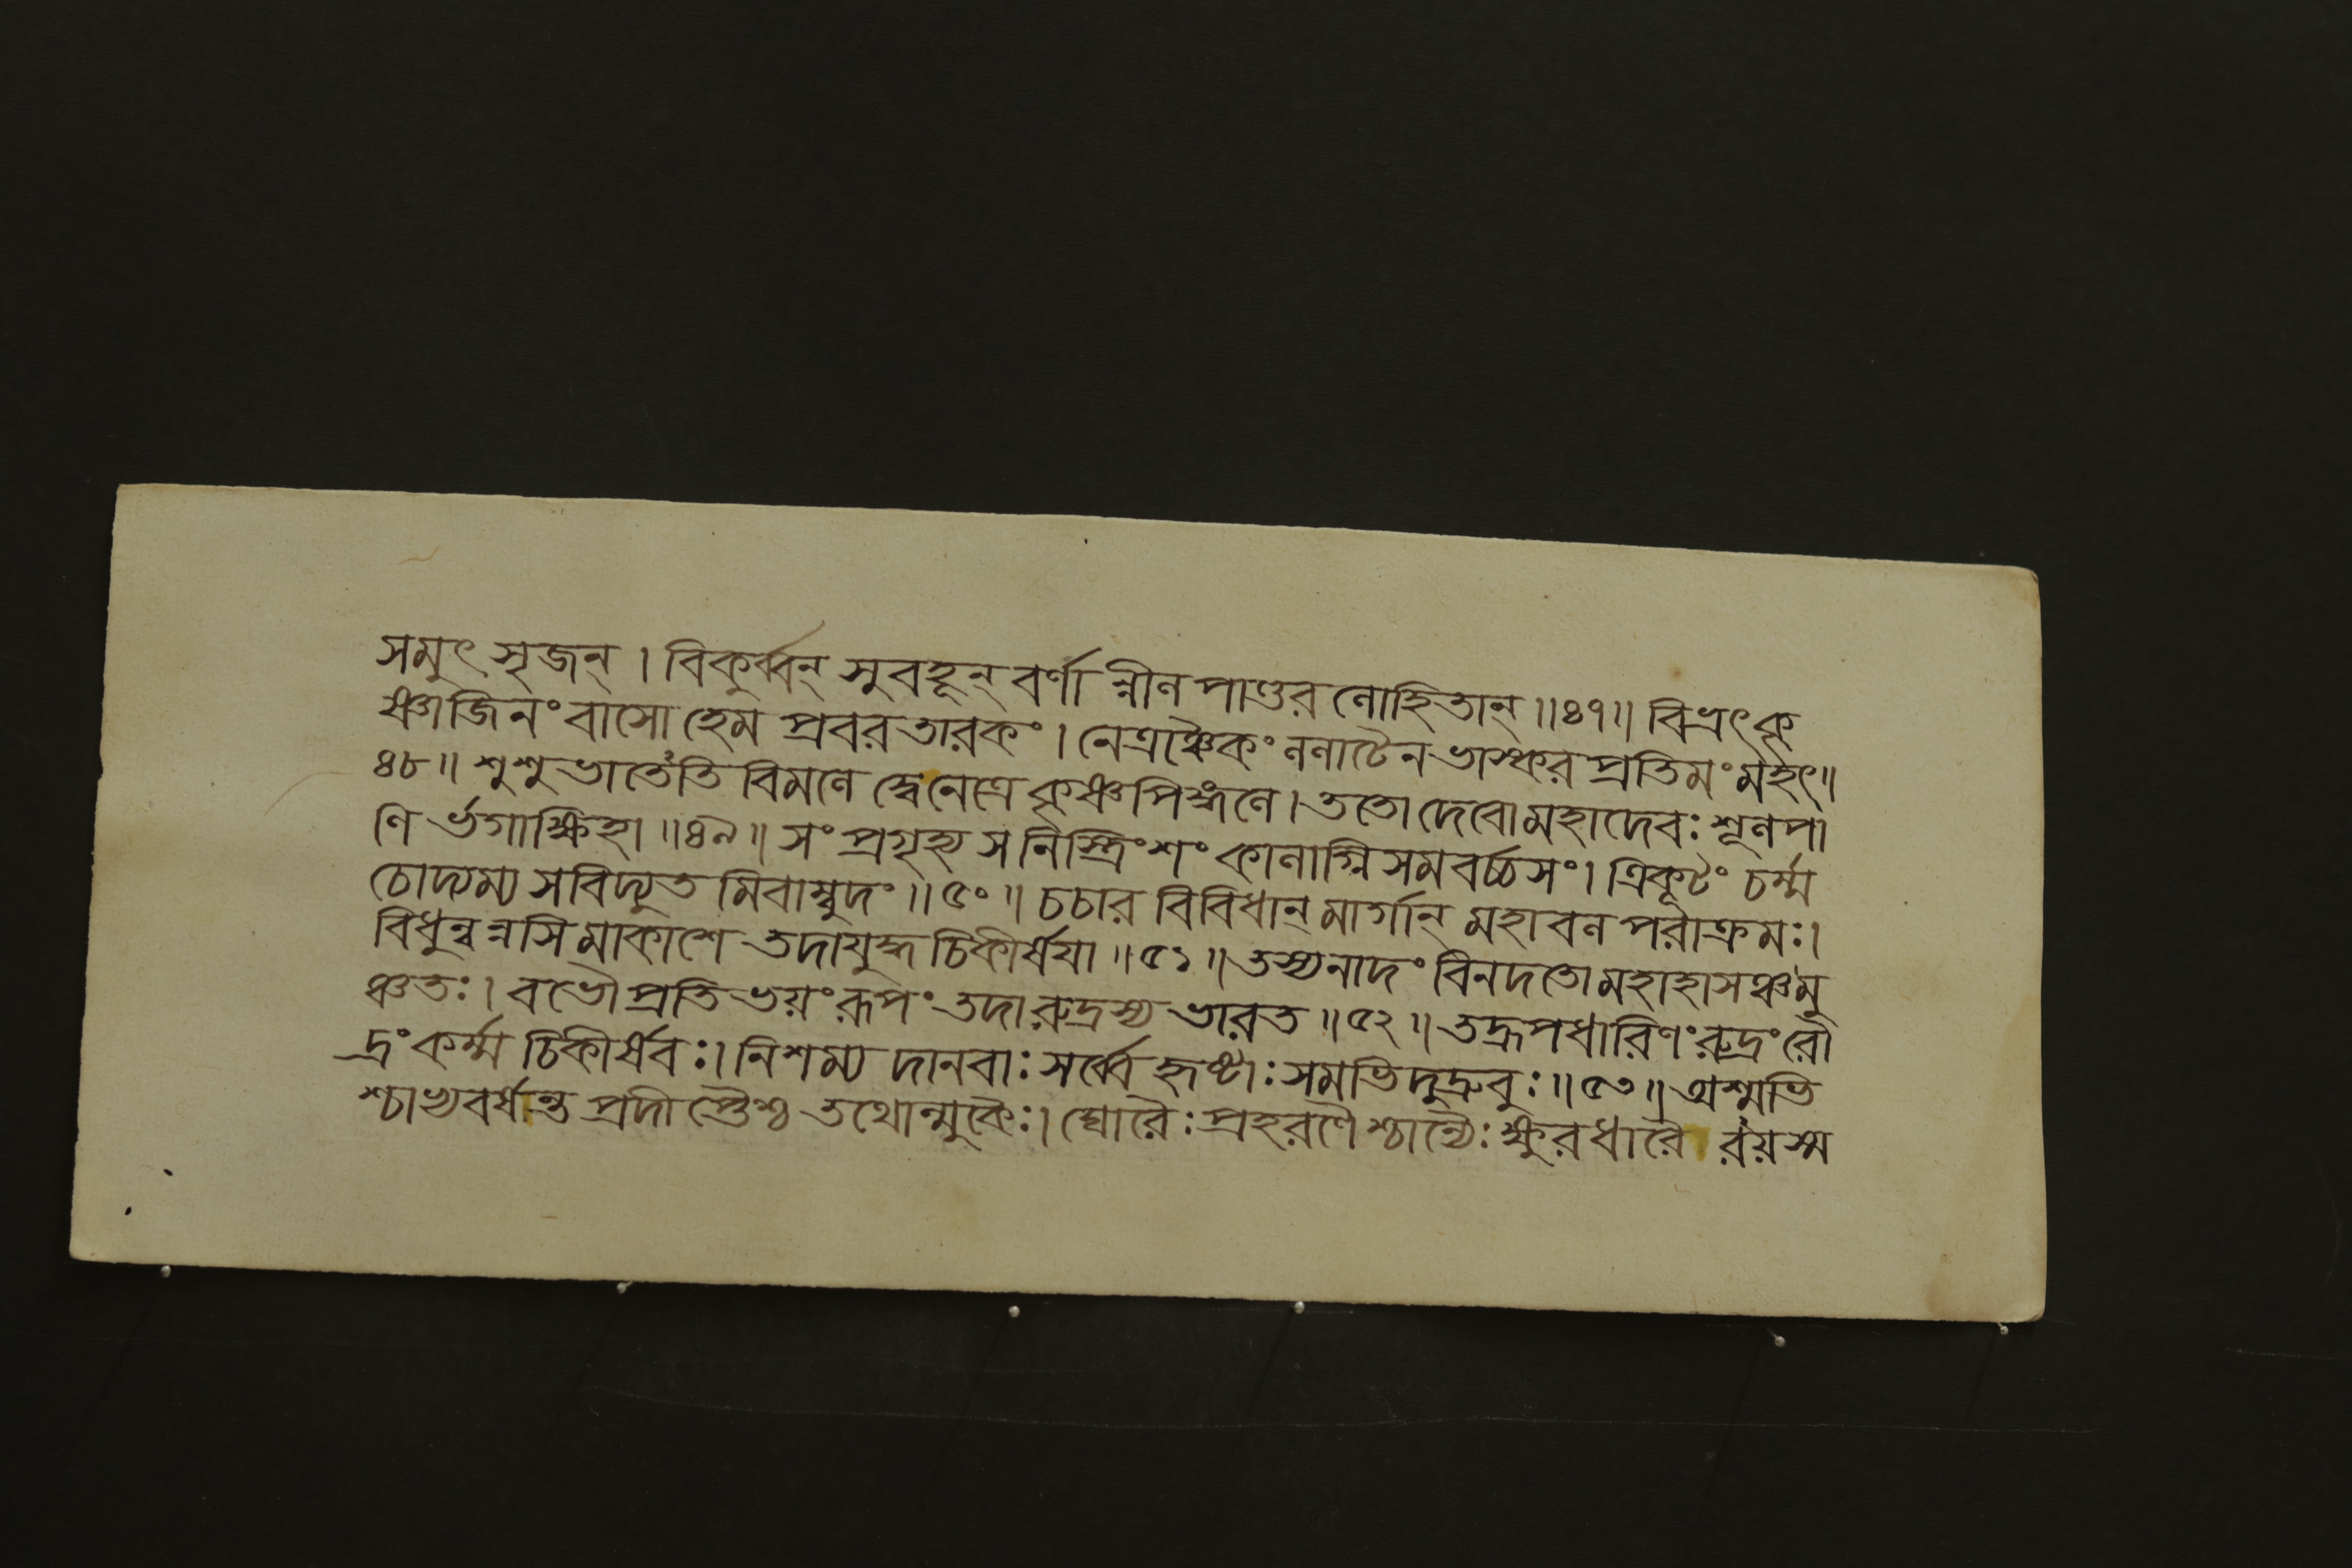 সমুৎ সৃজন্ । বিকুর্ব্বন্ সুবহূন্ বর্ণা ন্নীল পাণ্ডর লোহিতান্ ॥৪৭॥ বিভ্রৎ কৃ
ষ্ণাজিনং বাসো হেম প্রবর তারকং । নেত্রঞ্চৈকং ললাটেন ভাস্কর প্রতিমং মহৎ ॥
৪৮ ॥ শুশুভাতেতি বিমলে দ্বে নেত্রে কৃষ্ণপিঙ্গলে । ততো দেবো মহাদেবঃ শূলপা
ণি র্ভগাক্ষিহা ॥৪৯॥ সংপ্রগৃহ্য স নিস্ত্রিংশং কালাগ্নি সমবর্চ্চসং । ত্রিকূটং চর্ম্ম
চোদ্যম্য সবিদ্যুত মিবাম্বুদং ॥৫০॥ চচার বিবিধান্ মার্গান্ মহাবল পরাক্রমঃ ।
বিধুন্বন্নসি মাকাশে তদা যুদ্ধ চিকীর্ষয়া ॥৫১॥ তস্য নাদং বিনদতো মহাহাসঞ্চমু
ঞ্চতঃ । বভৌ প্রতি ভয়ং রূপং তদা রুদ্রস্য ভারত ॥৫২॥ তদ্রূপধারিণং রুদ্রং রৌ
দ্রং কর্ম্ম চিকীর্ষবঃ । নিশম্য দানবাঃ সর্ব্বে হৃষ্টাঃ সমভিদুদ্রুবুঃ ॥৫৩॥ অশ্মভি
শ্চাভ্যবর্ষন্ত প্রদীপ্তৈশ্চ তথোল্মুকৈঃ । ঘোরৈঃ প্রহরণৈ শ্চান্যৈঃ ক্ষুরধারৈ রয়স্ম